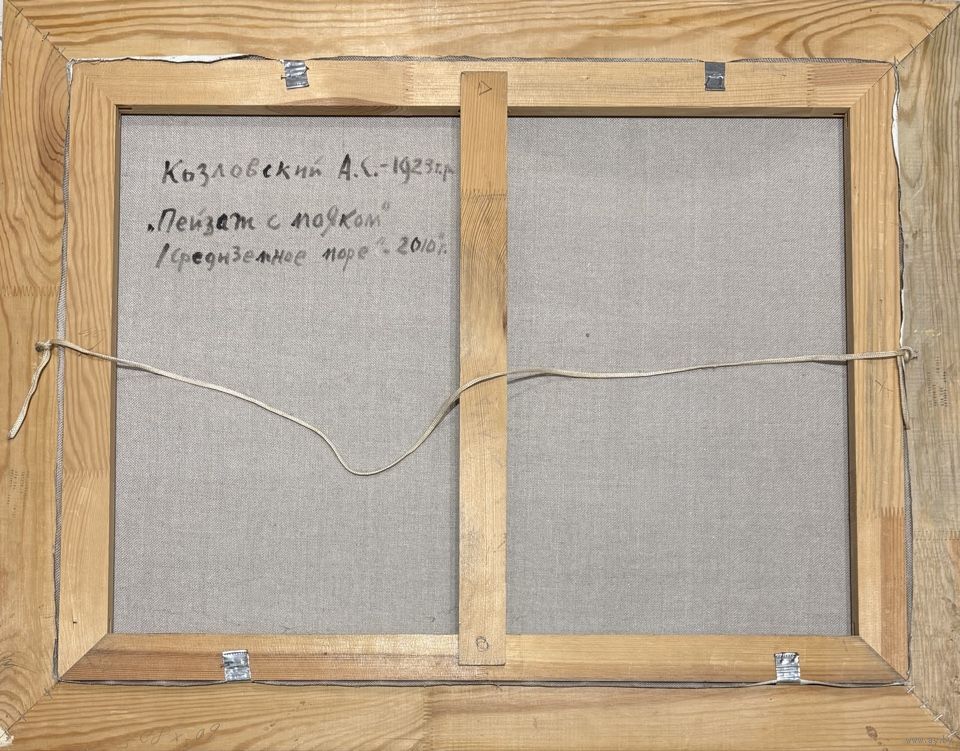 Козловский А.С.-1923г.р
„Пейзаж с маяком"
/Средиземное море". 2010г.